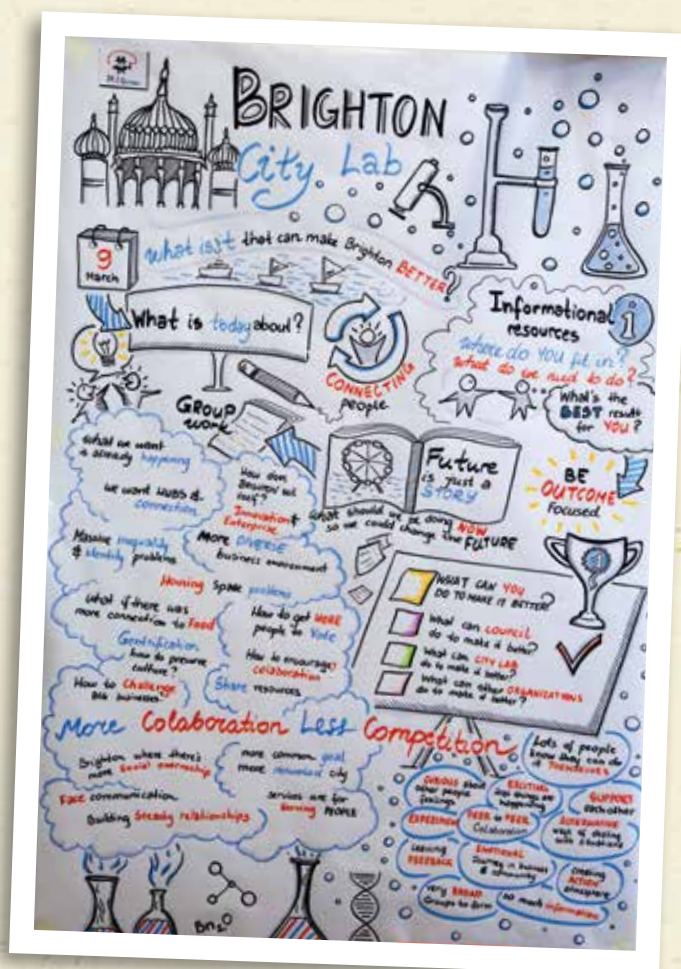 BRIGHTON
City Lab
9
March
What isit that can make Brighton BETTER?
What is today about?
CONNECTING
people
Informational
resources
1
Where do YOU fit in?
What do we need to do?
What's the
BEST result
for YOU?
GROUP
work
Future
is just a
STORY
BE
OUTCOME
Focused
What should we be doing NOW
so we could change the FUTURE
What we want
is already happening
we want HUBS &
connection
How does
Brighton
Innovation &
Enterprise
Massive inequality
& identity problems
More DIVERSE
business environment
Housing space problems
What if there was
more connection to Food
How to get MORE
people to Vote
Gentrification
how to preserve
culture?
How to encourage
colaboration
How to Challenge
BIG businesses?
Share resources
WHAT CAN YOU
DO TO MAKE IT BETTER?
What can COUNCIL
do to make it better?
What can CITY LAB
do to make it better?
What can other ORGANIZATIONS
do to make it better?
More Colaboration Less Competition
Brighton where there's
more Social ownership
more common goal
more city
Face communication
Building Steady relationships
services are for
Serving PEOPLE
Lots of people
know they can do
it THEMSELVES
CURIOUS about
other people
feelings
EXCITING
things are
happening
SUPPORT
each other
EXPERIMENT
PEER to PEER
Colaboration
ALTERNATIVE
ways of dealing
with situations
Leaving
FEEDBACK
EMOTIONAL
Journey in business
& community
Creating
ACTION
atmosphere
Very BROAD
Groups to form
so much information